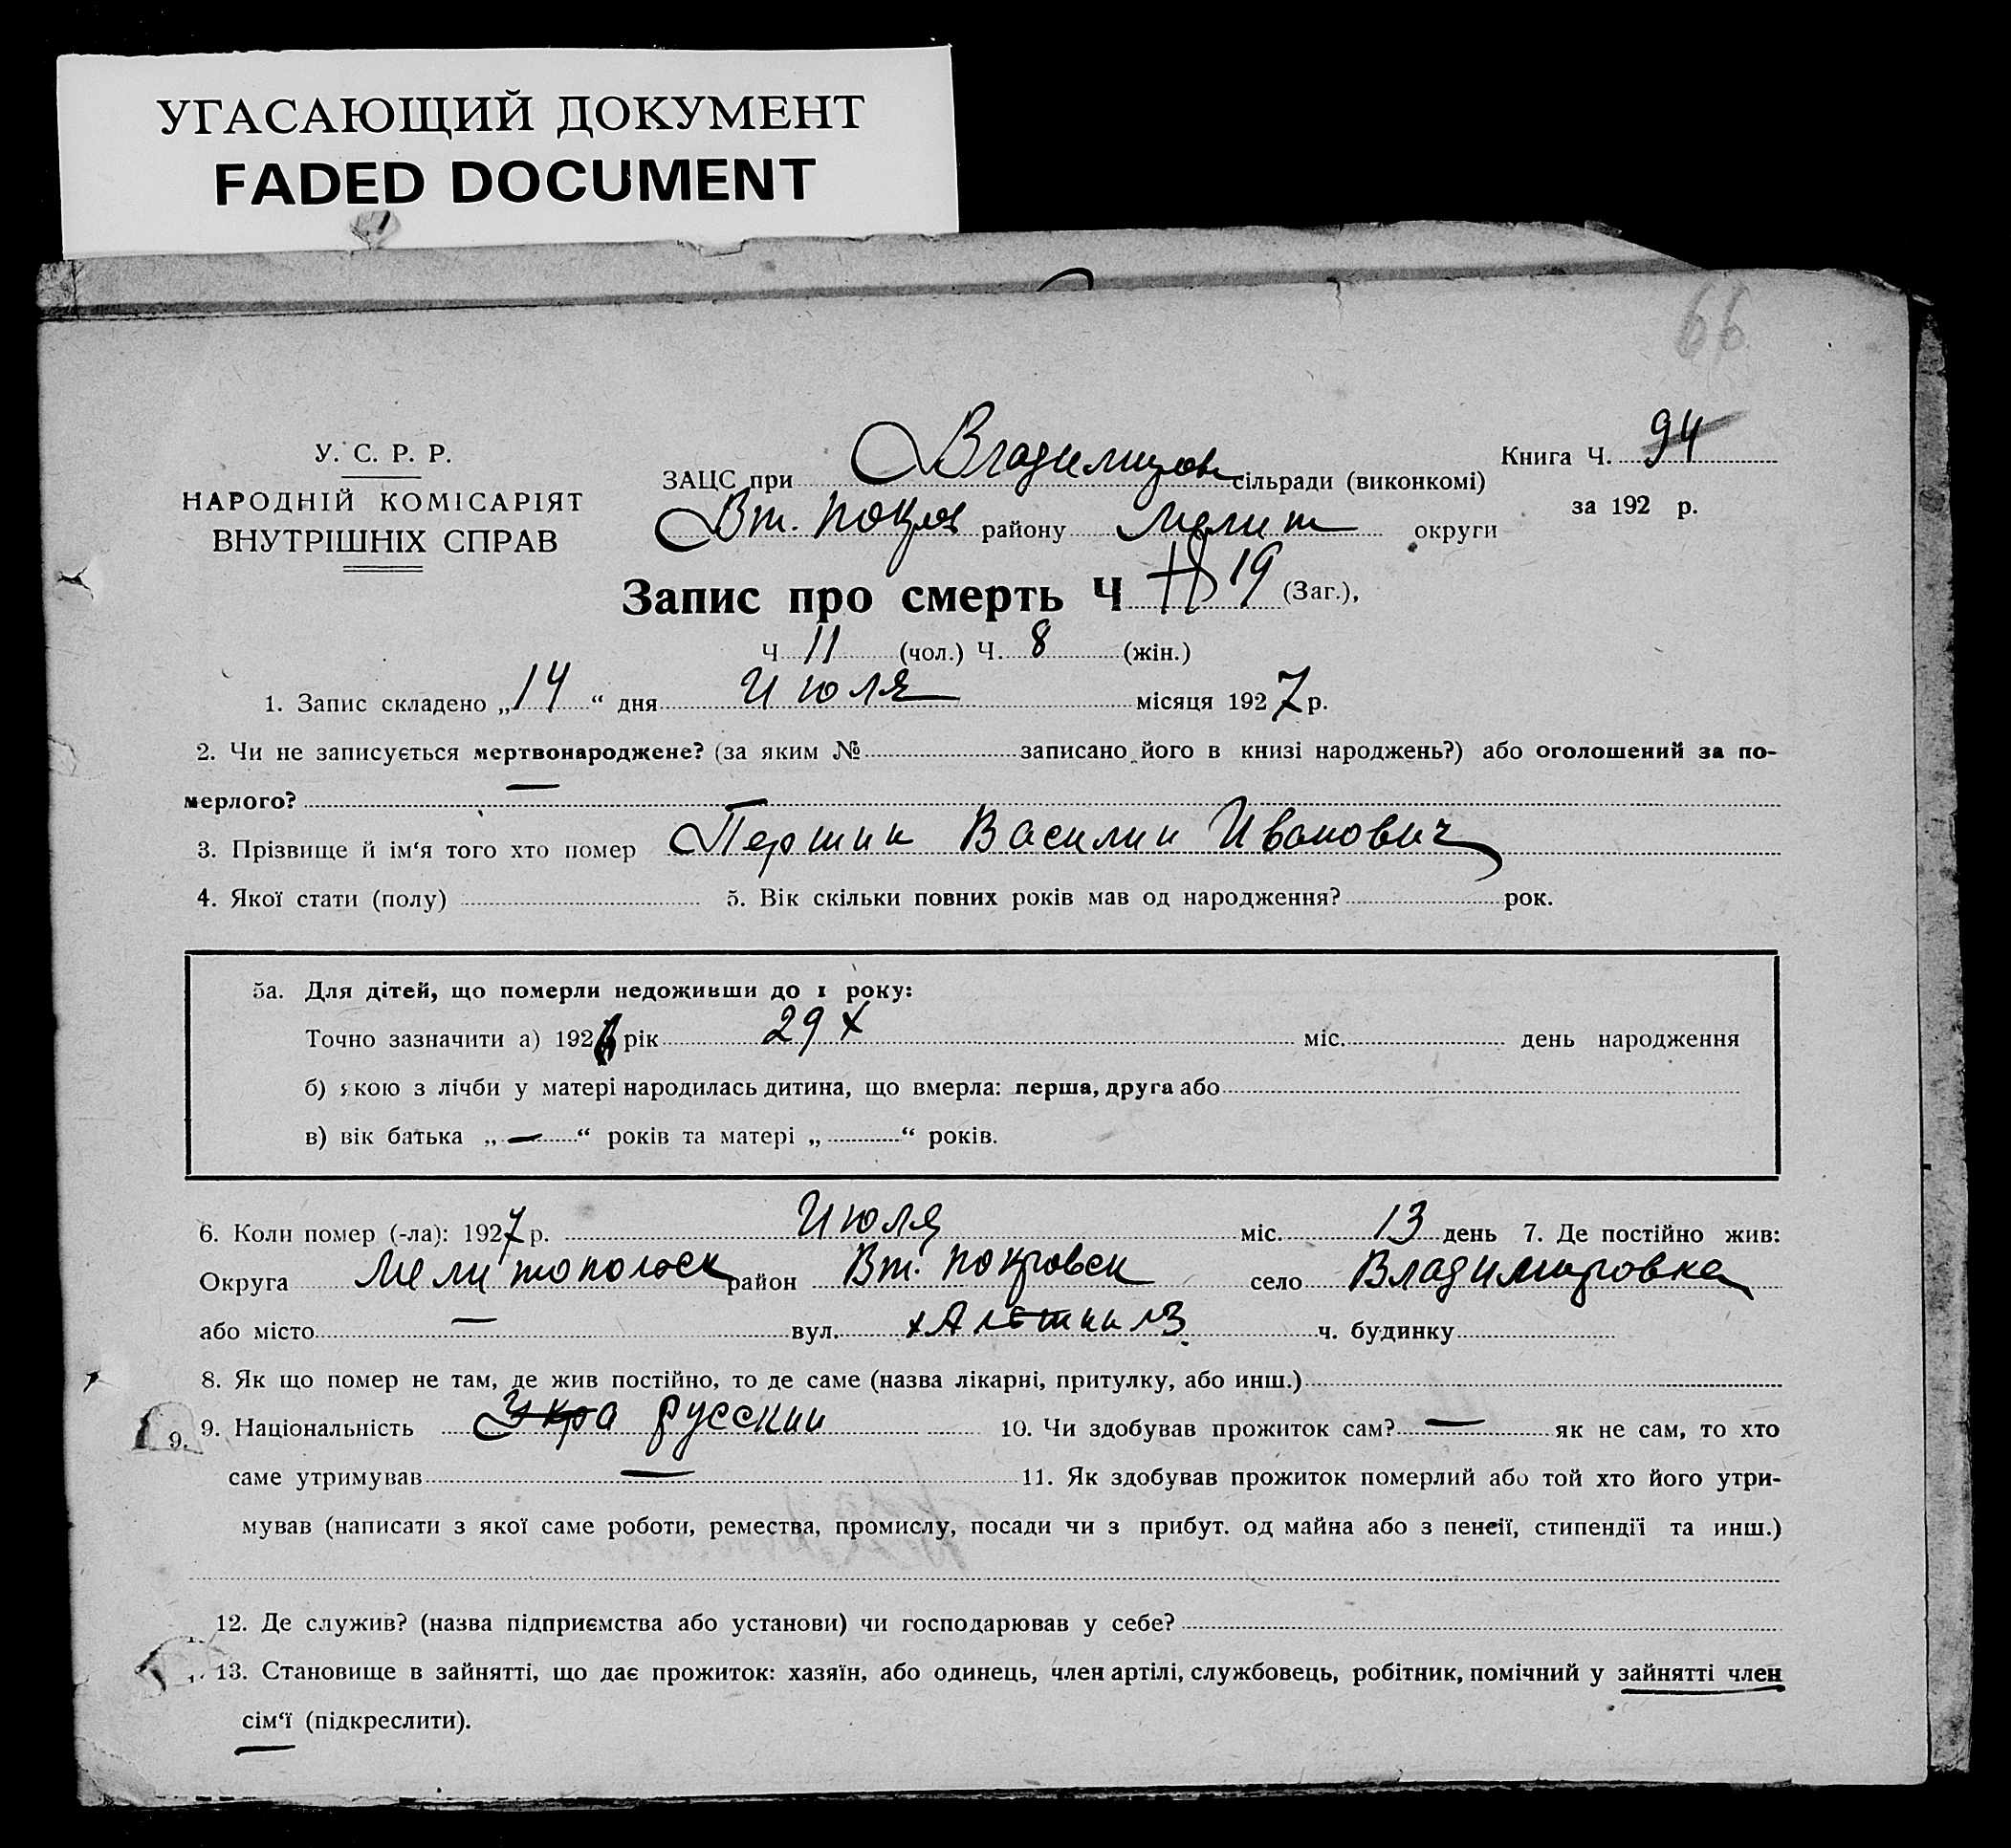 УГАСАЮЩИЙ ДОКУМЕНТ
FADED DOCUMENT
66
У. С. Р. Р.
НАРОДНІЙ КОМІСАРІЯТ
ВНУТРІШНІХ СПРАВ
ЗАЦС при Владимиров сільради (виконкомі)
Вт. покров району Мелит округи
Книга Ч. 94
за 192 р.
Запис про смерть Ч 19 (Заг.),
Ч 11 (чол.) Ч. 8 (жін.)
1. Запис складено „14“ дня Июля місяця 1927 р.
2. Чи не записується мертвонароджене? (за яким № записано його в книзі народжень?) або оголошений за по-
мерлого? —
3. Прізвище й ім‘я того хто помер Першин Василии Иванович
4. Якої стати (полу) 5. Вік скільки повних років мав од народження? рок.
5а. Для дітей, що померли недоживши до 1 року:
Точно зазначити а) 1926 рік 29 X міс. день народження
б) якою з лічби у матері народилась дитина, що вмерла: перша, друга або
в) вік батька „—“ років та матері „ “ років.
6. Коли помер (-ла): 1927 р. Июля міс. 13 день 7. Де постійно жив:
Округа Мелитопольск район Вт. покровск село Владимировка
або місто — вул. ч. будинку
8. Як що помер не там, де жив постійно, то де саме (назва лікарні, притулку, або инш.)
9. 9. Національність Укра русский 10. Чи здобував прожиток сам? — як не сам, то хто
саме утримував — 11. Як здобував прожиток померлий або той хто його утри-
мував (написати з якої саме роботи, ремества, промислу, посади чи з прибут. од майна або з пенсії, стипендії та инш.)
12. Де служив? (назва підприємства або установи) чи господарював у себе?
13. Становище в зайнятті, що дає прожиток: хазяїн, або одинець, член артілі, службовець, робітник, помічний у зайнятті член
сім‘ї (підкреслити).